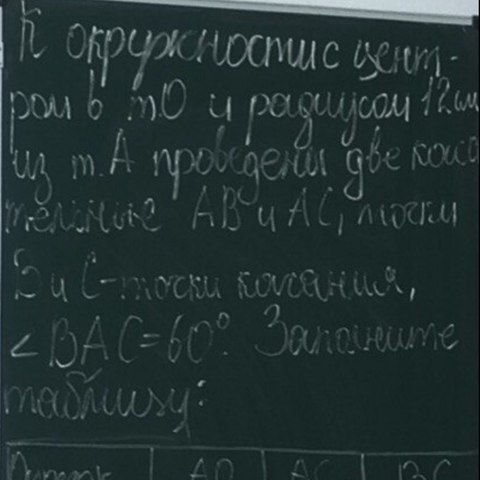 К окружности с цент-
ром в т.О и радиусом 12 см
из т.А проведены две каса
тельные АВ и АС, точки
В и С-точки касания,
∠BAC=60°. Заполните
таблицу:
АС ВС